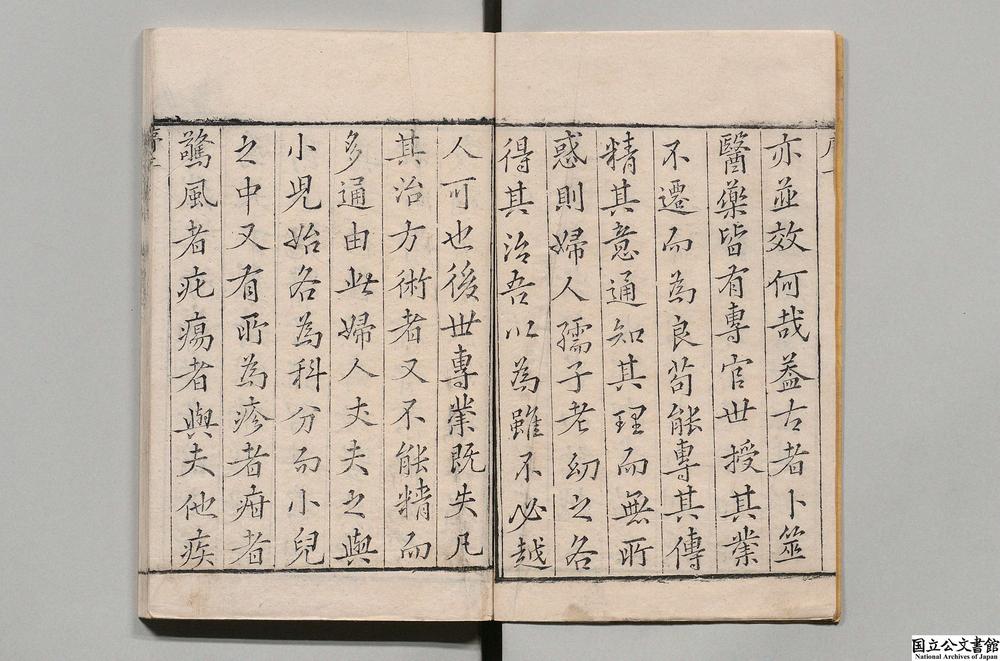 亦並效何哉葢古者卜筮
醫藥皆有專官世授其業
不遷而為良苟能專其傳
精其意通知其理而無所
惑則婦人孺子老幼之各
得其治吾以為雖不必越
人可也後世專業既失凡
其治方術者又不能精而
多通由此婦人丈夫之與
小児始各為科分而小兒
之中又有所為疹者疳者
驚風者疕瘍者與夫他疾
国立公文書館
National Archives of Japan